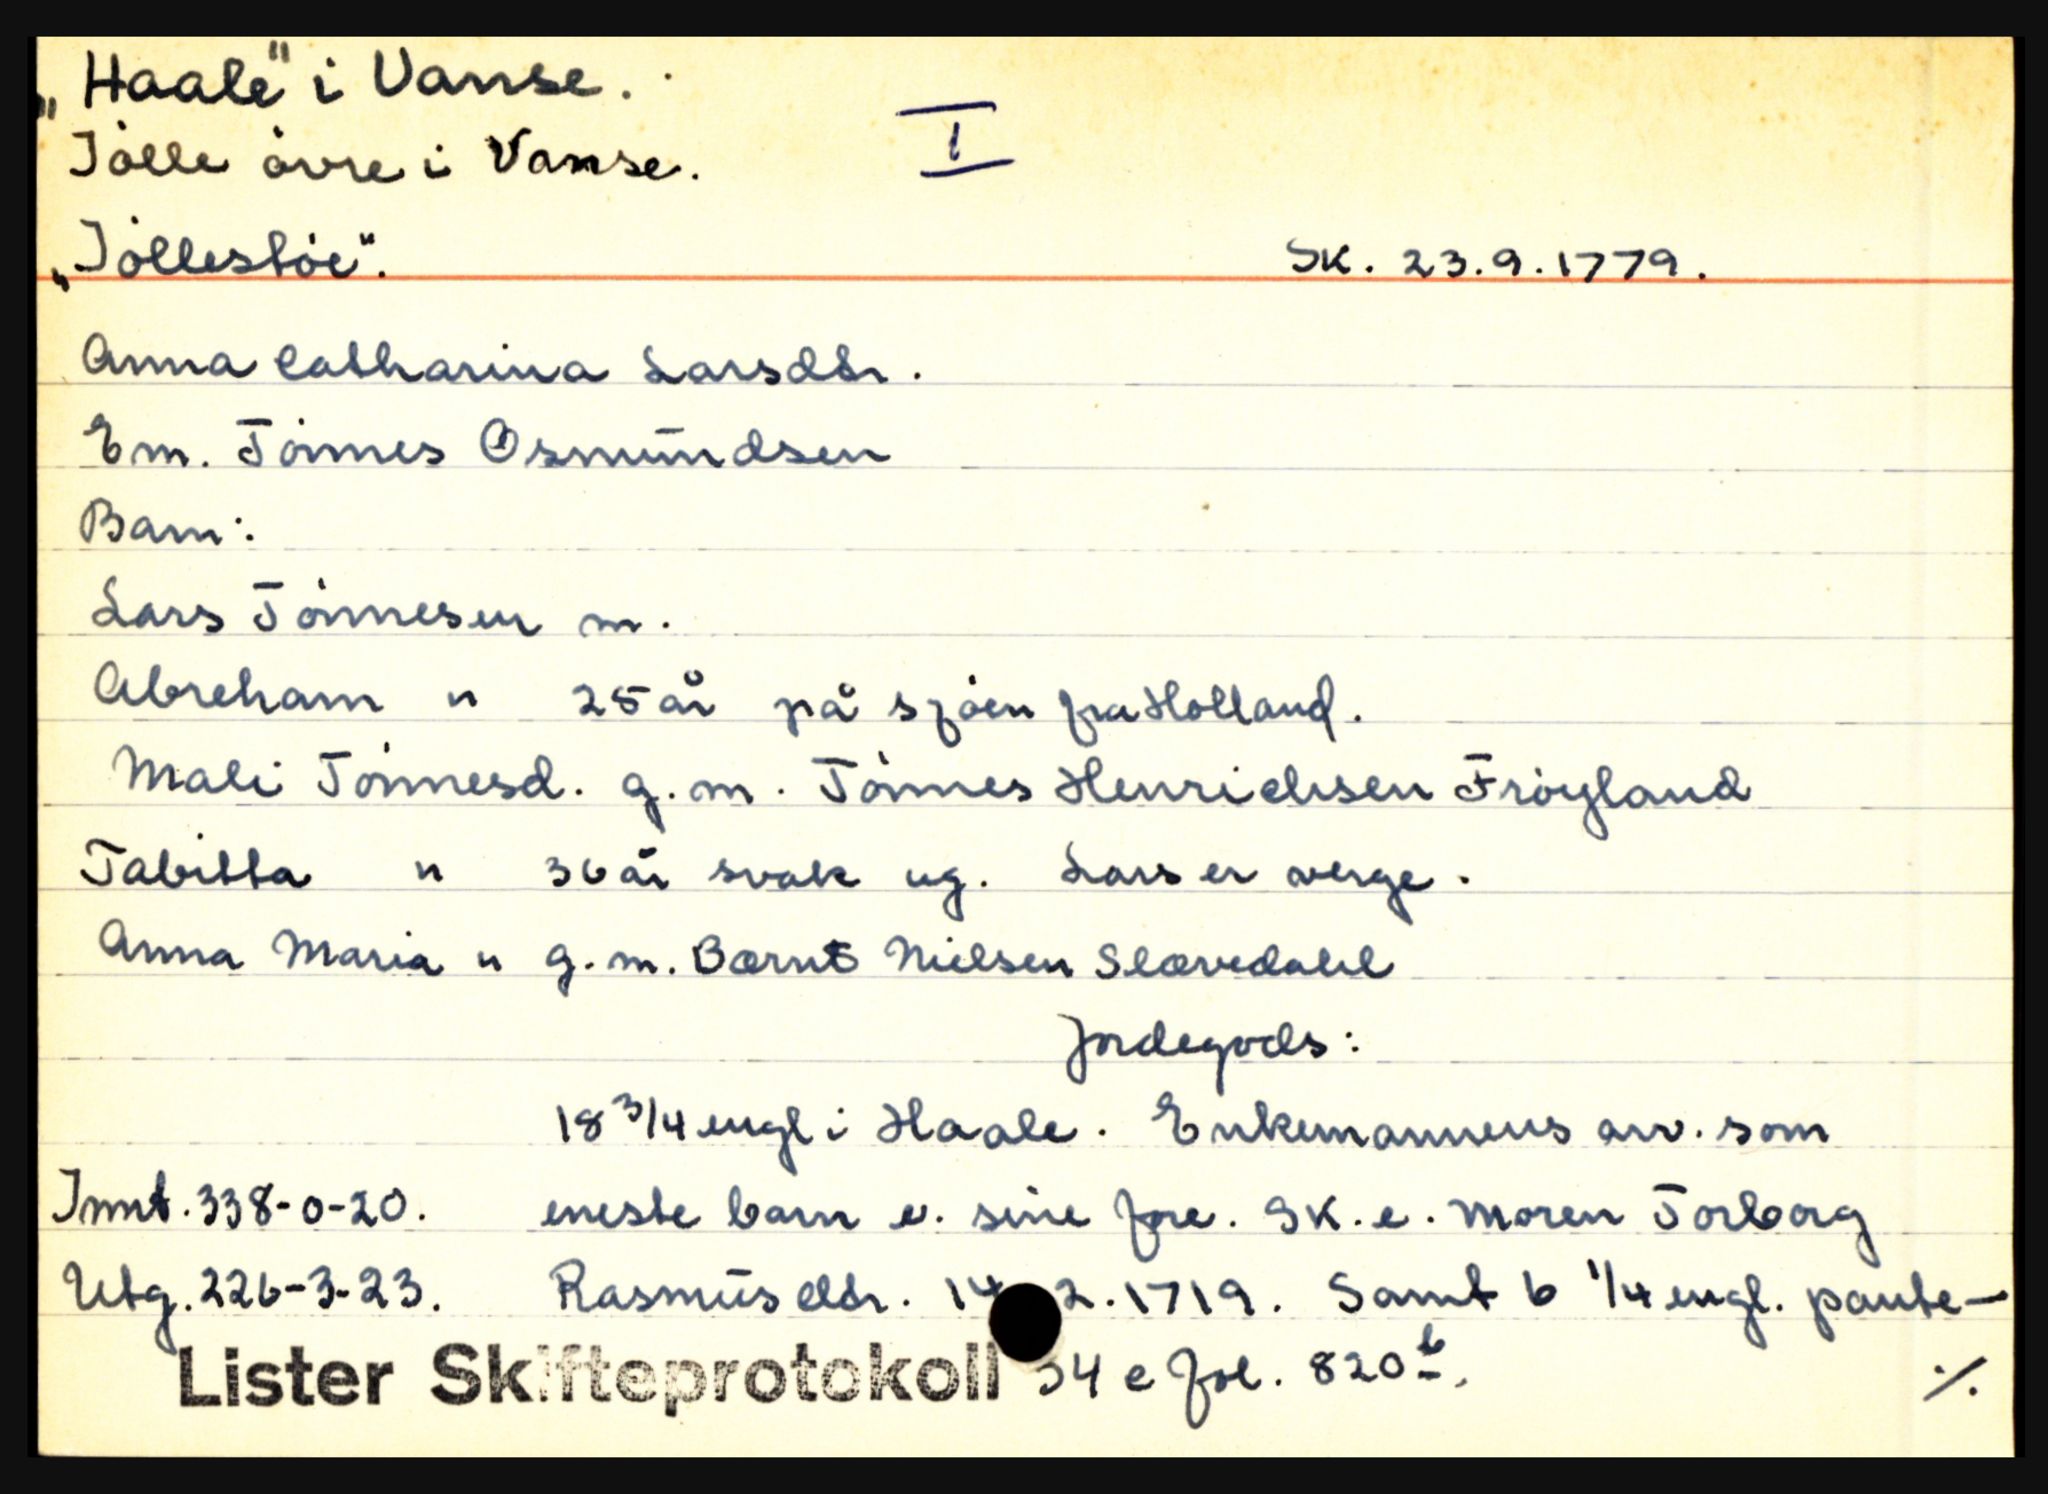 „Haale" i Vanse.
Jölle övre i Vanse. I
„Jöllestöe". Sk. 23.9.1779.
Anna Catharina Larsdtr.
Em. Tönnes Osmundsen
Barn:
Lars Tönnesen m.
Abreham " 25 år på sjöen fra Holland.
Mali Tönnesd. g.m. Tönnes Henrichsen Fröyland
Tabitta " 36 år svak ug. Lars er verge.
Anna Maria " g.m. Bærnt Nielsen Slævdahl
Jordegods:
18 3/4 engl i Haale. Enkemannens arv. som
Innt. 338-0-20. eneste barn e. sine fore. Sk. e. moren Torborg
Utg. 226-3-23. Rasmusdtr. 14 2.1719. Samt 6 1/4 engl. pante-
Lister Skifteprotokoll 34 e fol. 820 b.
./.